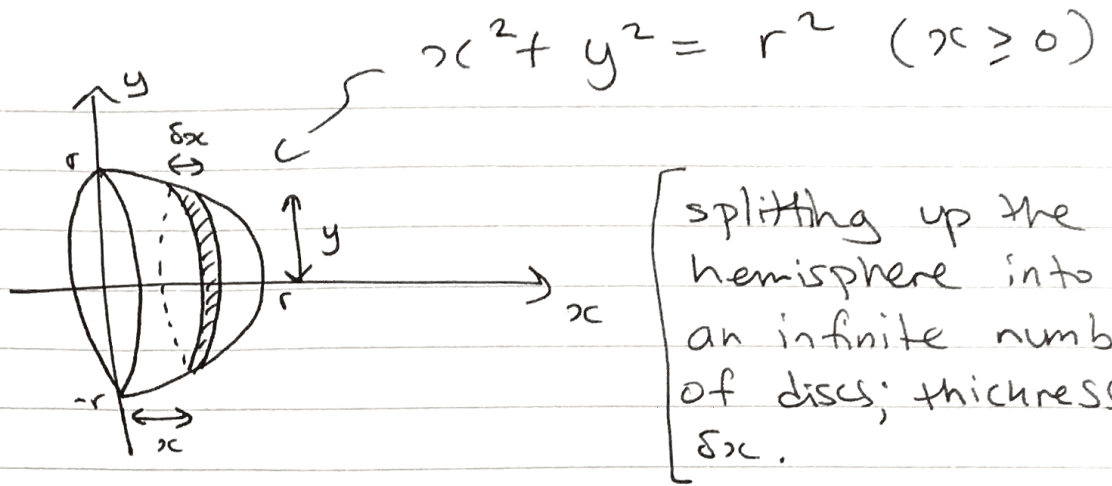 x² + y² = r² (x ≥ 0)
y
δx
r
y
r
x
-r
x
splitting up the
hemisphere into
an infinite numb
of discs; thickness
δx.